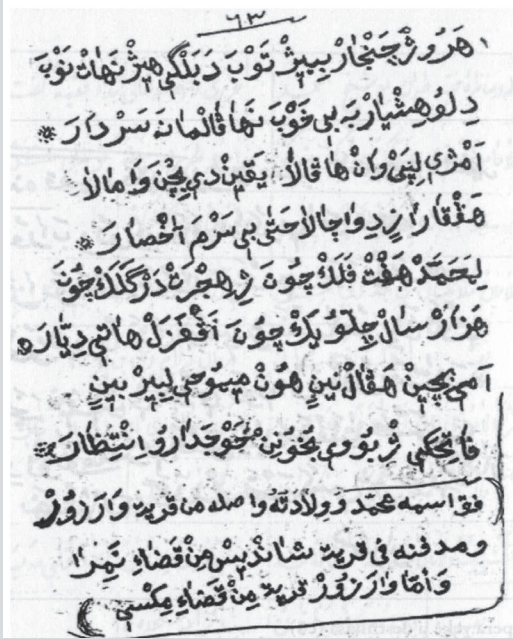 ٦٣
هَرُو ژْ جَنْجَارْ بِبِيژْ تَوْبَ دَبَلْگِي هِيژْ نَهَاتْ نَوْبَ
دِلُو هِشْيَارْ بَه بِي قَوْبَ نَهَا قَالْمَانَه سَرْدَارَ *
اَمْرِي لِيَنِي وَانْ هَا قَالَا يَقِينْ دِي بِچِنْ وَامَالَا
هَقْقَارَا زِدِوَا چَالَا حَتٰى بِي سَرْهَمْ اَخْصَارَ *
لِحَمَدْ هَفْتْ فَلَكْ چُونَ ژِ هِجْرَتْ دَرْ گَلَكْ چُونَ
هَزَارْ سَالْ چِلُو يَكْ چُونَ اَڤْ غَزَلْ هَاتِي دِيَّارَ *
اَمِي بِچِينْ هَڤَالْ نِينِ هُونْ مِيسُوحِي لِبِيرْ بِينِ
فَاتِحَكِي ژْ بُو وِي بِخُونِنْ خَوْجَدَارُ و اِنْتِظَارَ *
فق اسمه محمّد وولادته واصله من قرية وَارَزُوزْ
ومدفنه في قرية شانديس مِنْ قَضَاءِ تِمِرَا
وَامَّا وَارَزُوزْ قرية مِنْ قَضَاءِ مِكْسِي